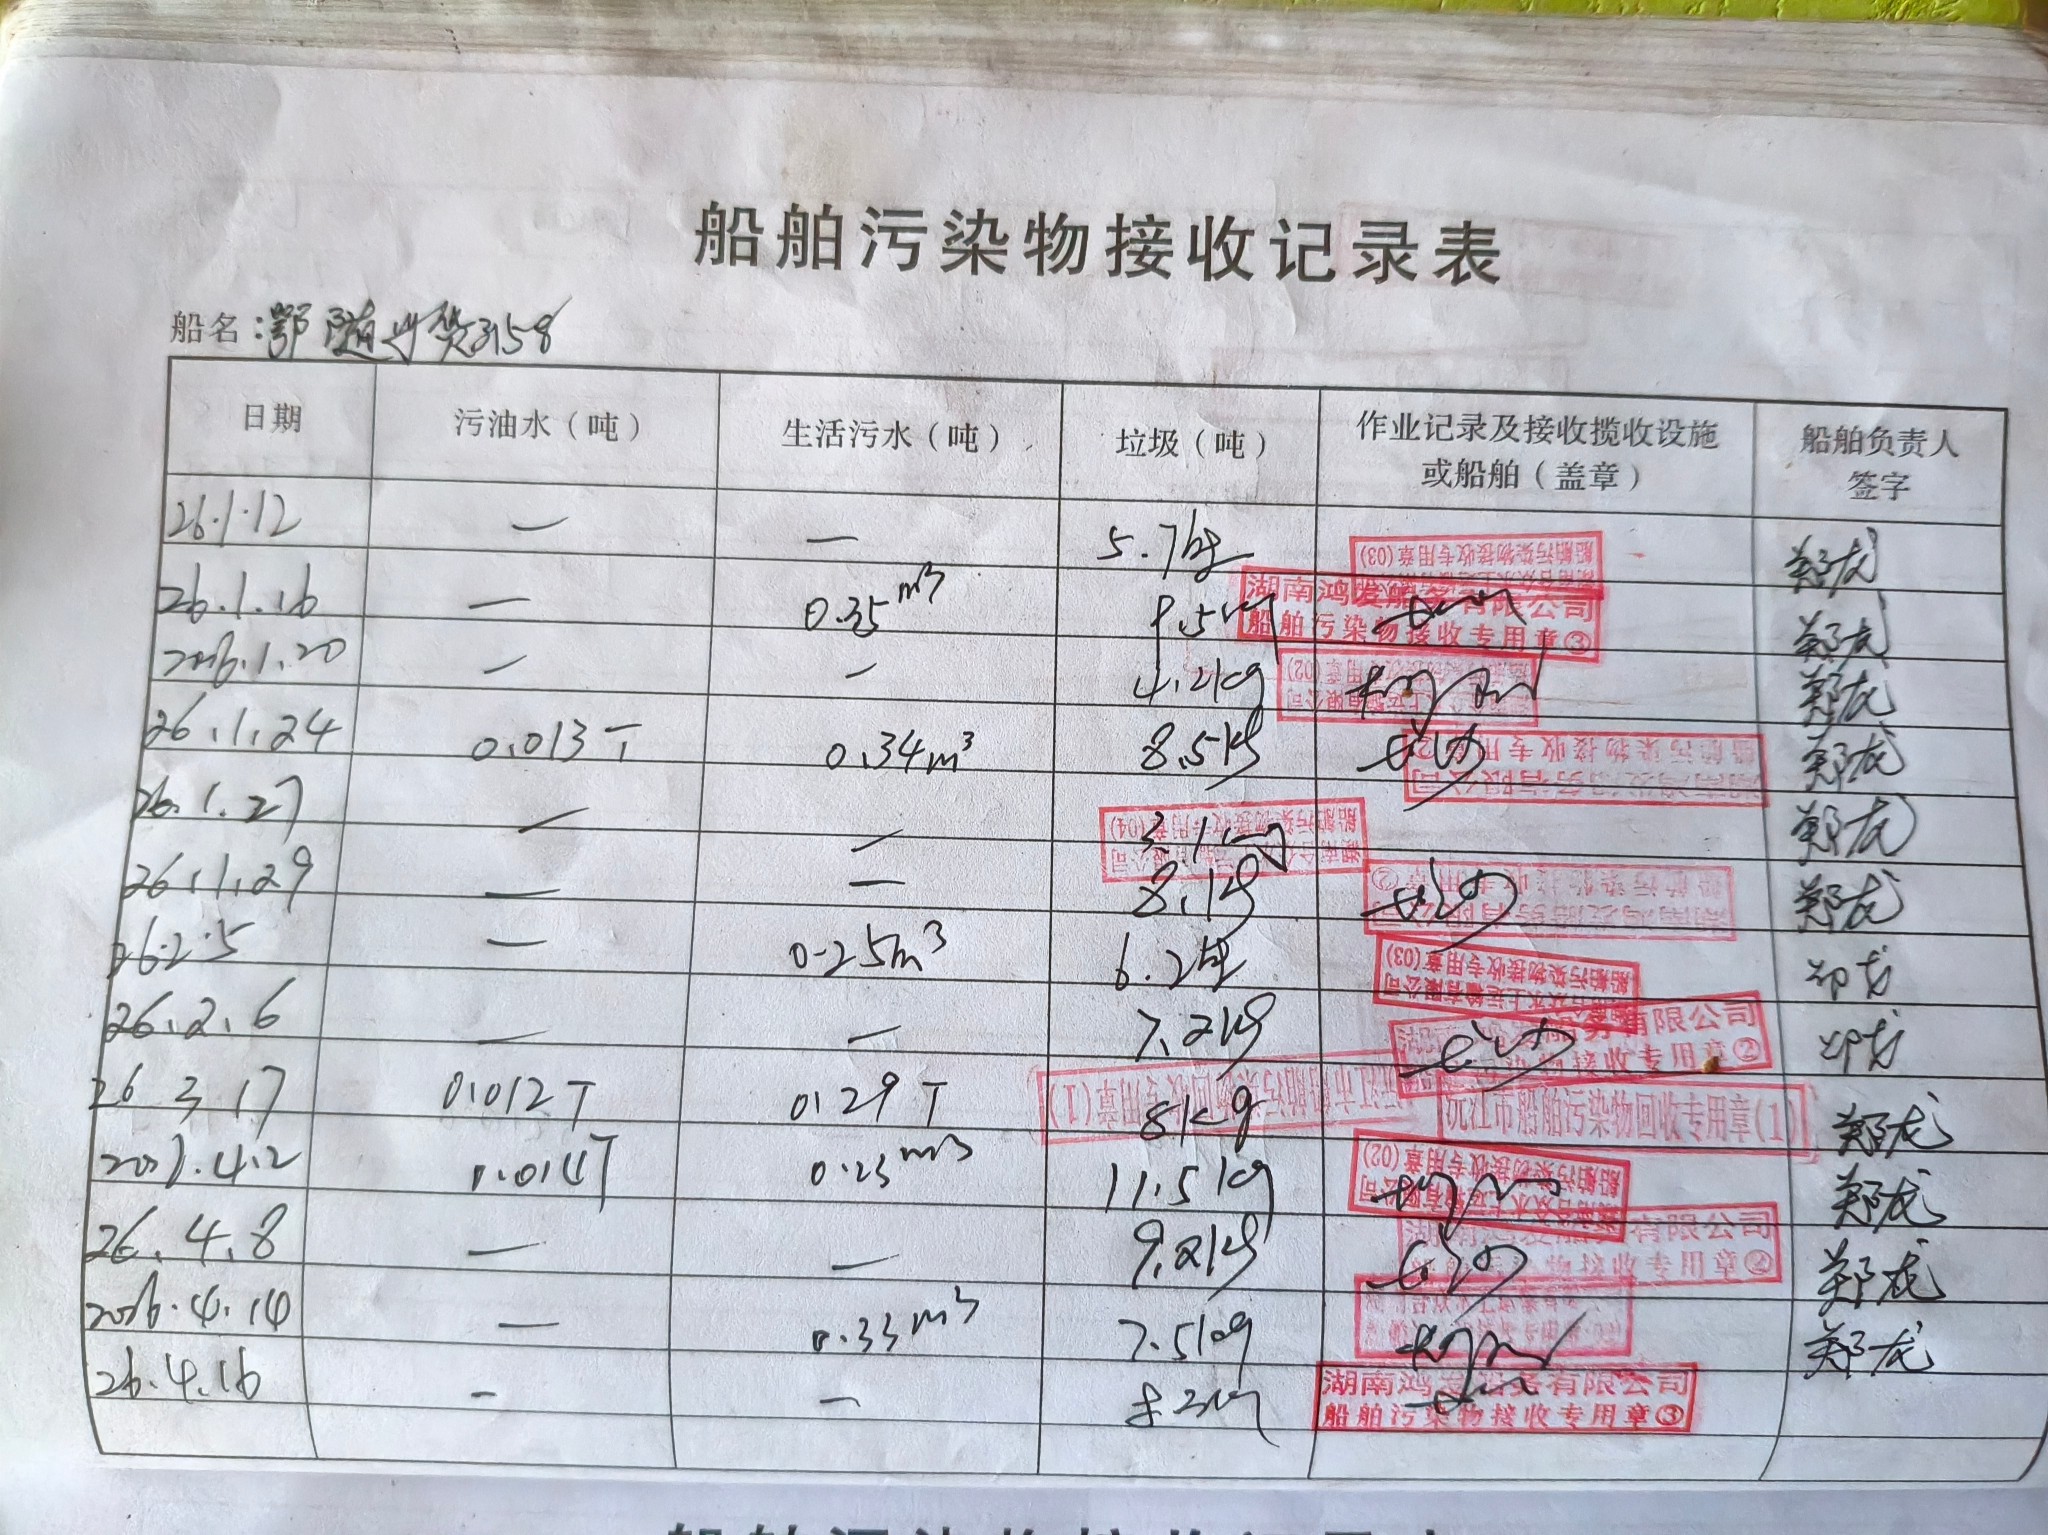 船舶污染物接收记录表
船名：鄂随州货3158
日期 污油水（吨） 生活污水（吨） 垃圾（吨） 作业记录及接收揽收设施或船舶（盖章） 船舶负责人签字
26.1.12 — — 5.7kg 船舶污染物接收专用章(03) 郑龙
26.1.16 — 0.35m³ 湖南鸿发船务有限公司 船舶污染物接收专用章③ 郑龙
2026.1.20 — — 4.2kg 郑龙
26.1.24 0.013T 0.34m³ 8.5kg 船舶污染物接收专用章② 郑龙
26.1.27 — — 船舶污染物接收专用章(04) 郑龙
26.1.29 — — 8.1kg 郑龙
26.2.5 — 0.25m³ 6.2kg 船舶污染物接收专用章(03) 郑龙
26.2.6 — — 7.2kg 有限公司 接收专用章② 郑龙
26 3 17 0.012T 0.29T 8kg 沅江市船舶污染物回收专用章(1) 沅江市船舶污染物回收专用章(1) 郑龙
4.2 0.23m³ 11.5kg 船舶污染物接收专用章(02) 郑龙
26.4.8 — — 9.2kg 有限公司 物接收专用章② 郑龙
2026.4.14 — 0.33m³ 7.5kg 郑龙
26.4.16 — — 湖南鸿发船务有限公司 船舶污染物接收专用章③